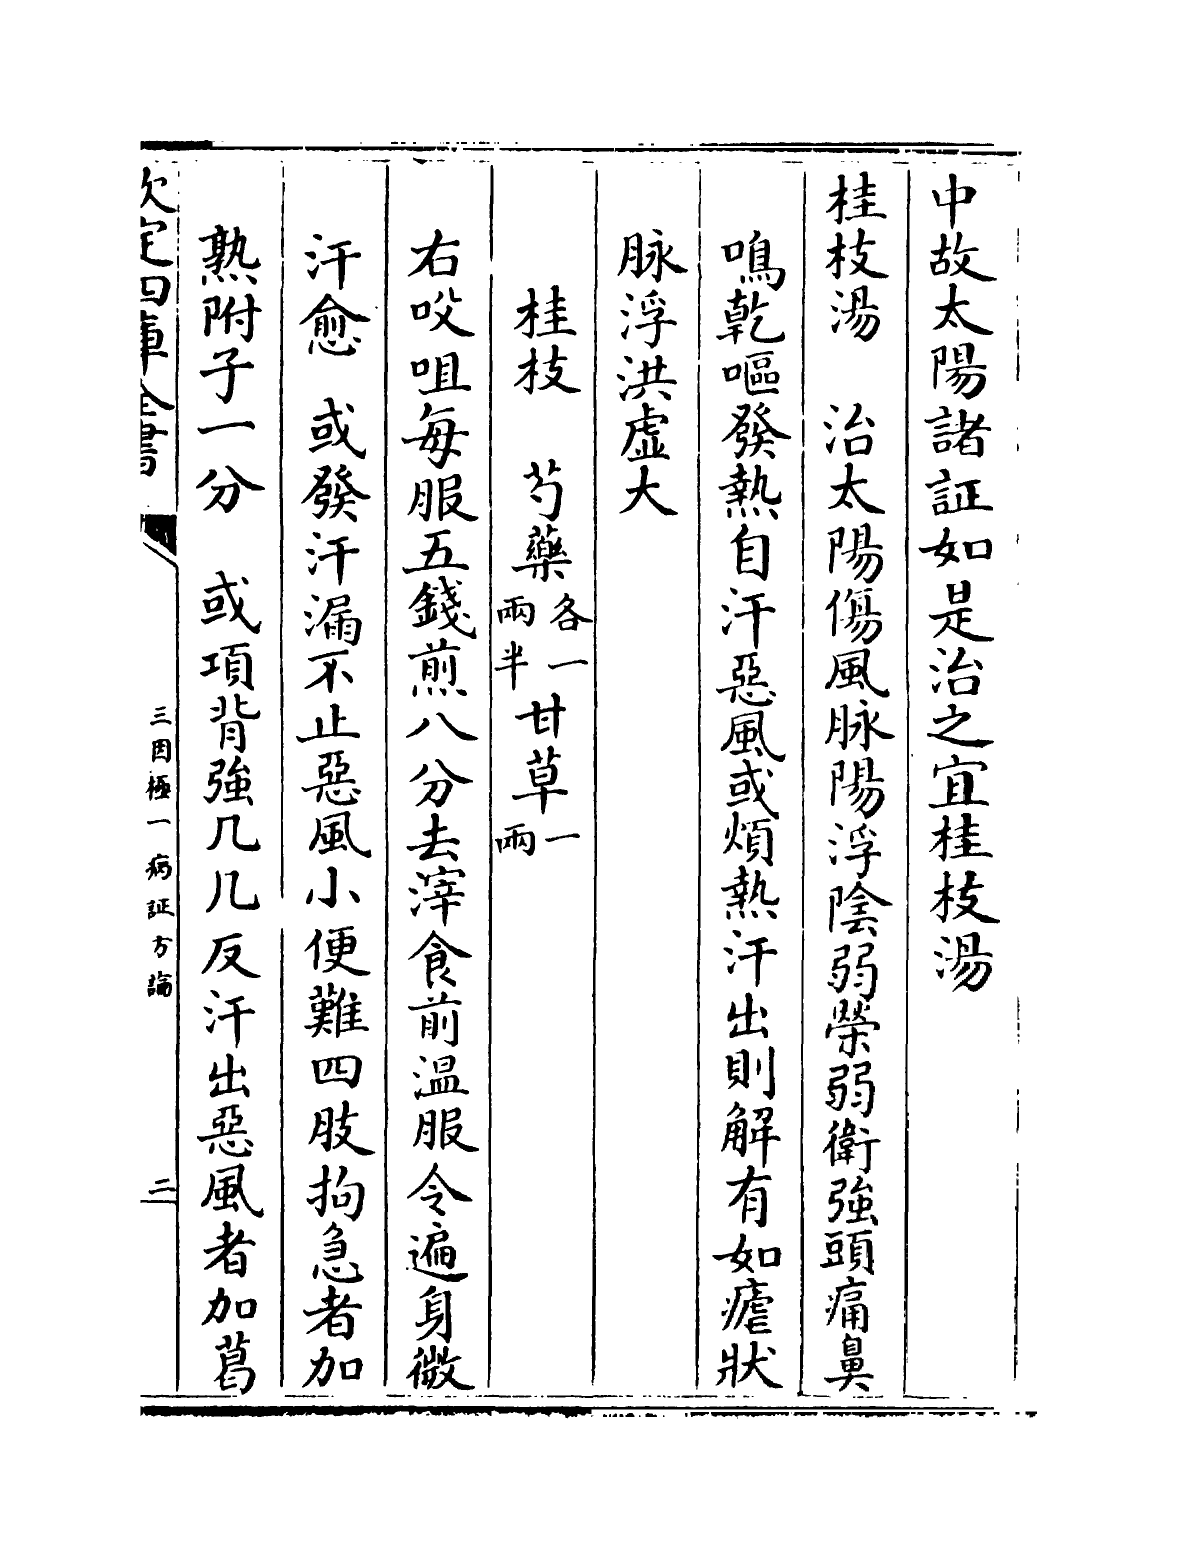 中故太陽諸証如是治之宜桂枝湯
桂枝湯　治太陽傷風脉陽浮陰弱榮弱衛強頭痛鼻
鳴乾嘔發熱自汗惡風或煩熱汗出則解有如瘧狀
脉浮洪虛大
桂枝　芍藥各一兩半甘草一兩
右㕮咀每服五錢煎八分去滓食前温服令遍身微
汗愈　或發汗漏不止惡風小便難四肢拘急者加
熟附子一分　或項背強几几反汗出惡風者加葛
欽定四庫全書
三因極一病証方論
二